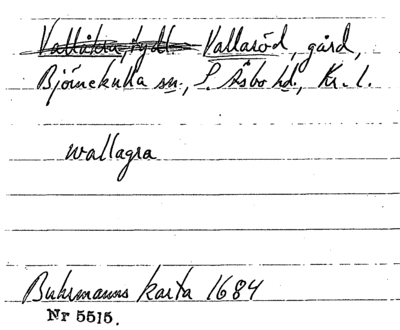 Vallåkra, tydl. Vallaröd, gård,
Björnekulla sn., S. Åsbo hd., Kr. l.
Wallagra
Buhrmanns karta 1684
Nr 5515.